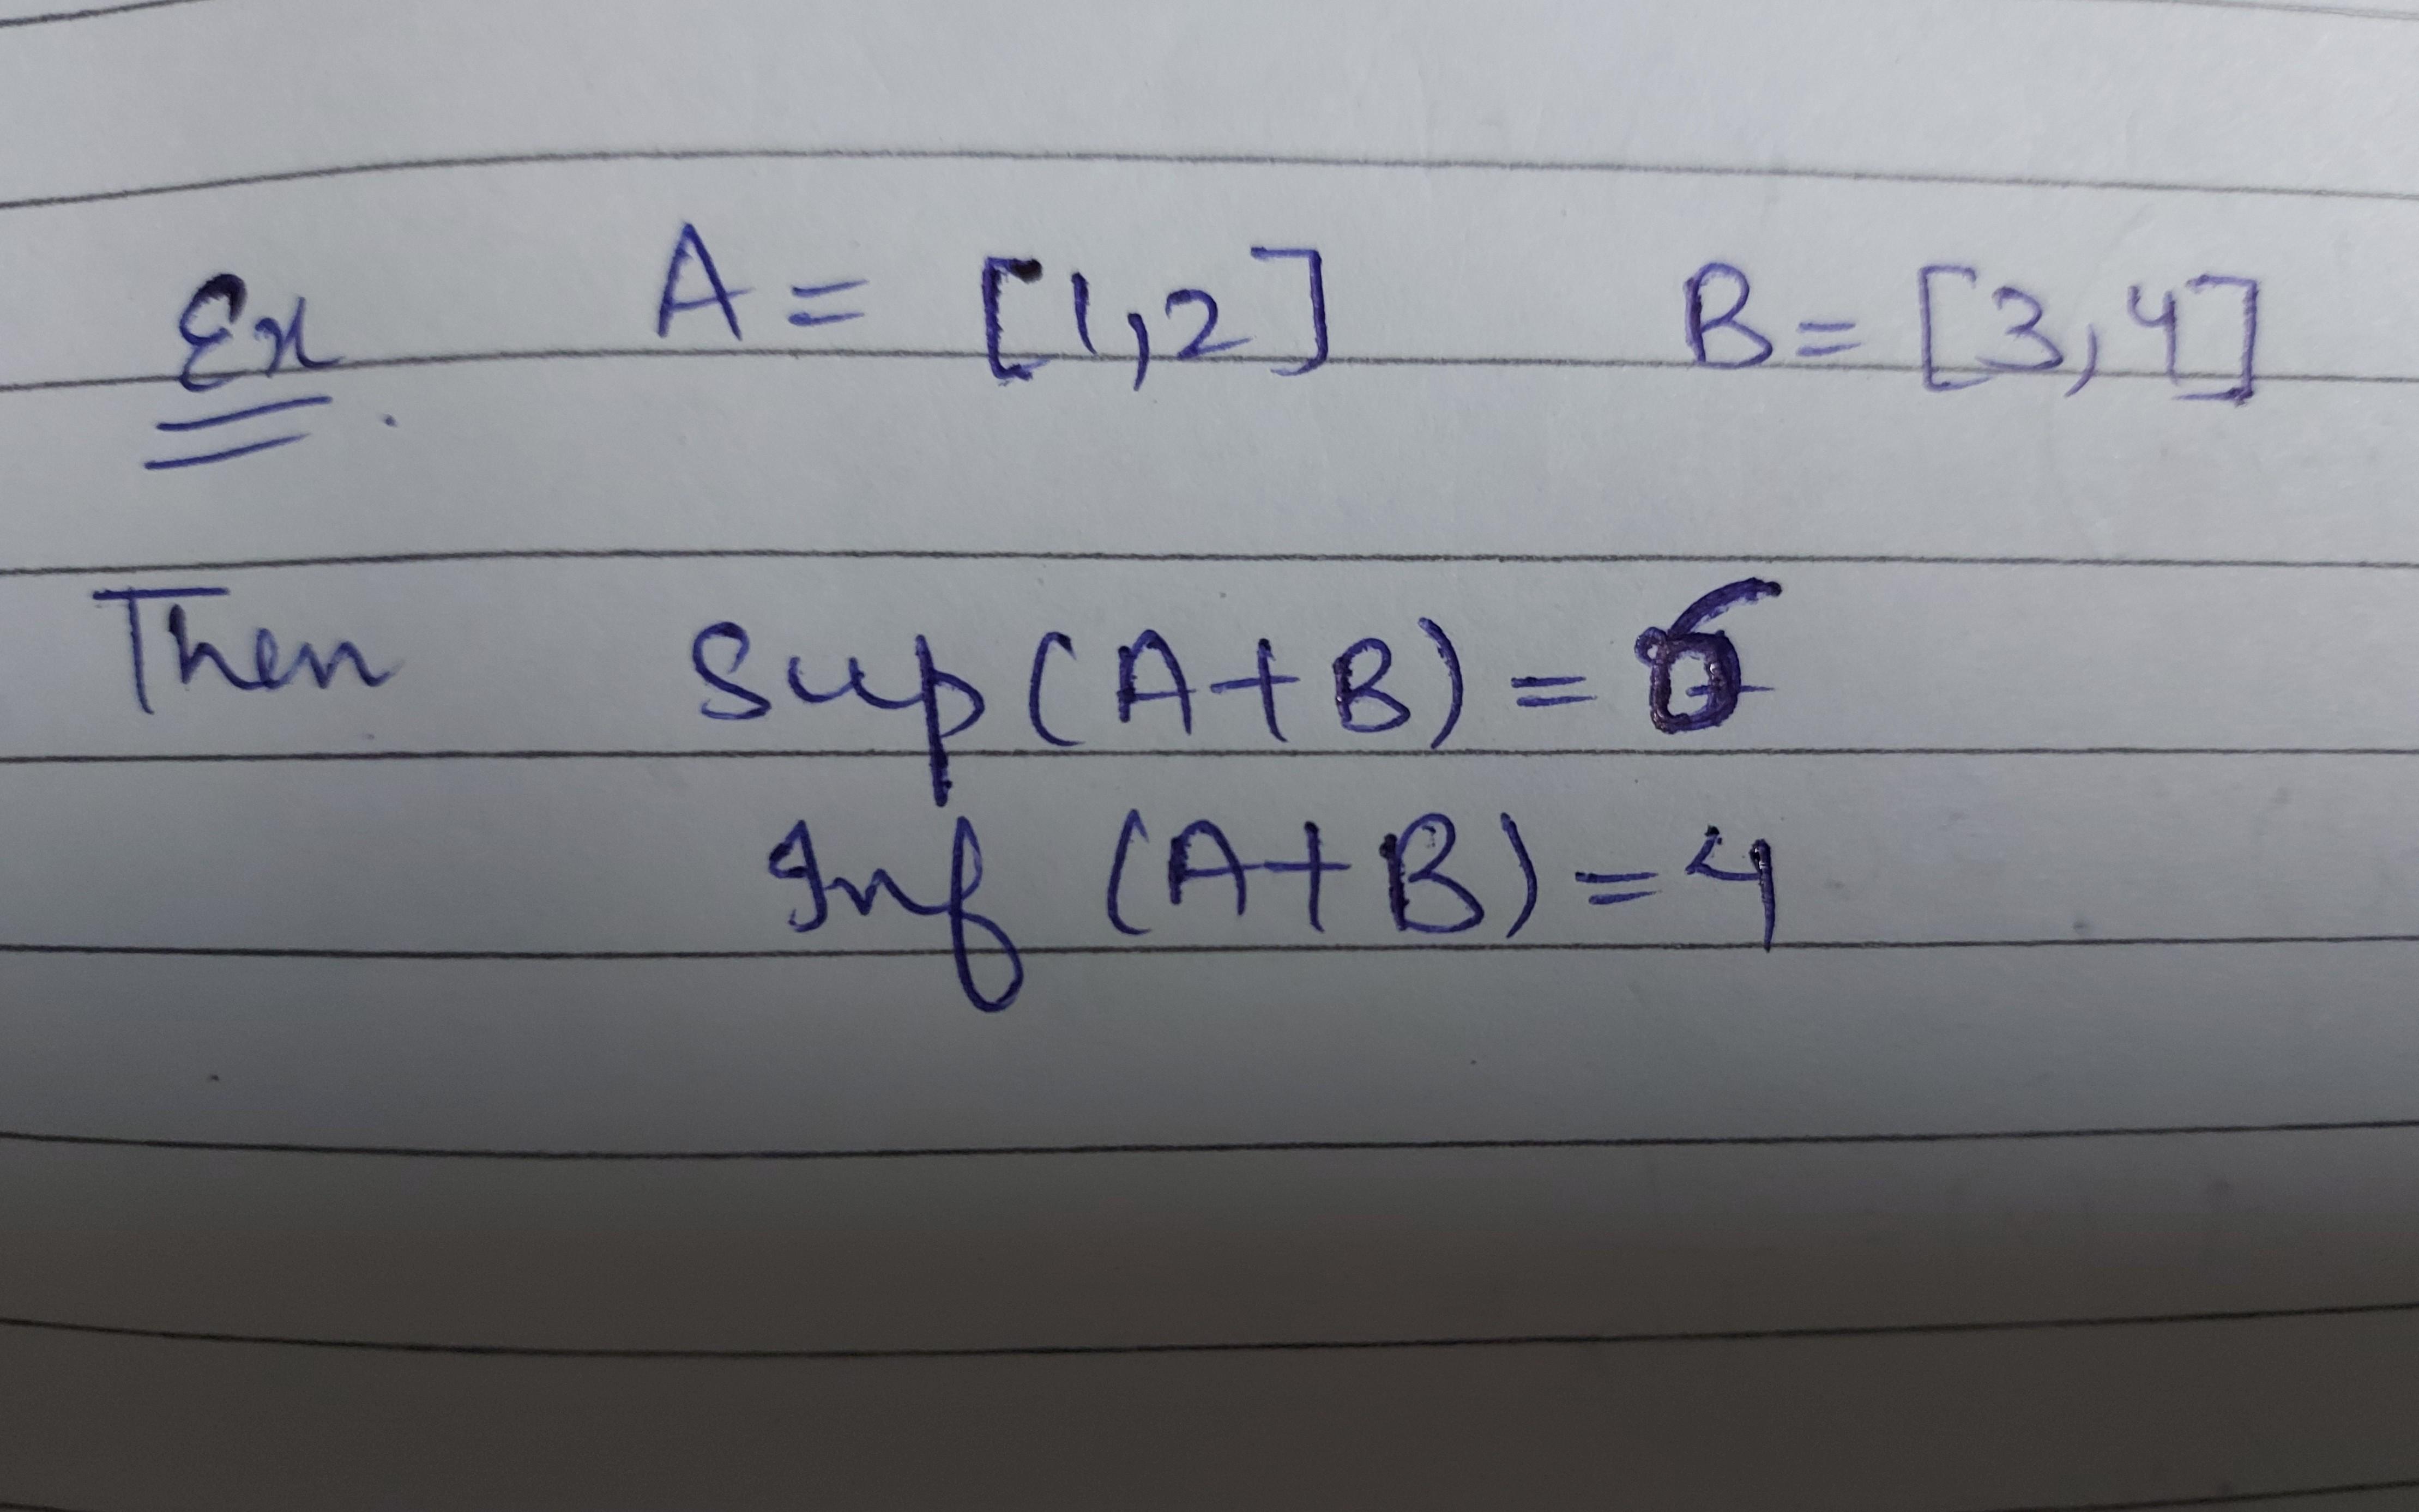 Ex. A = [1,2] B = [3,4]
Then Sup (A+B) = 6
Inf (A+B) = 4